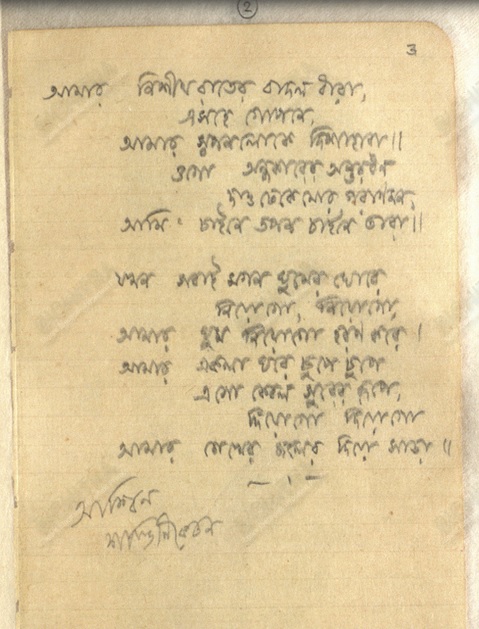 ②
3
আমার নিশীথ রাতের বাদল ধারা,
এসহে গোপনে,
আমার স্বপনলোকে দিশাহারা॥
ওগো অন্ধকারের অন্তরধন
দাও ঢেকে মোর পরাণমন,
আমি চাইনে তপন চাইনে তারা॥
যখন সবাই মগন ঘুমের ঘোরে
নিয়োগো, নিয়োগো,
আমার ঘুম নিয়োগো হরণ করে।
আমার একলা ঘরে চুপে চুপে
এসো কেবল সুরের রূপে,
দিয়োগো দিয়োগো
আমার চোখের জলের দিয়ো সাড়া॥
আশ্বিন
শান্তিনিকেতন